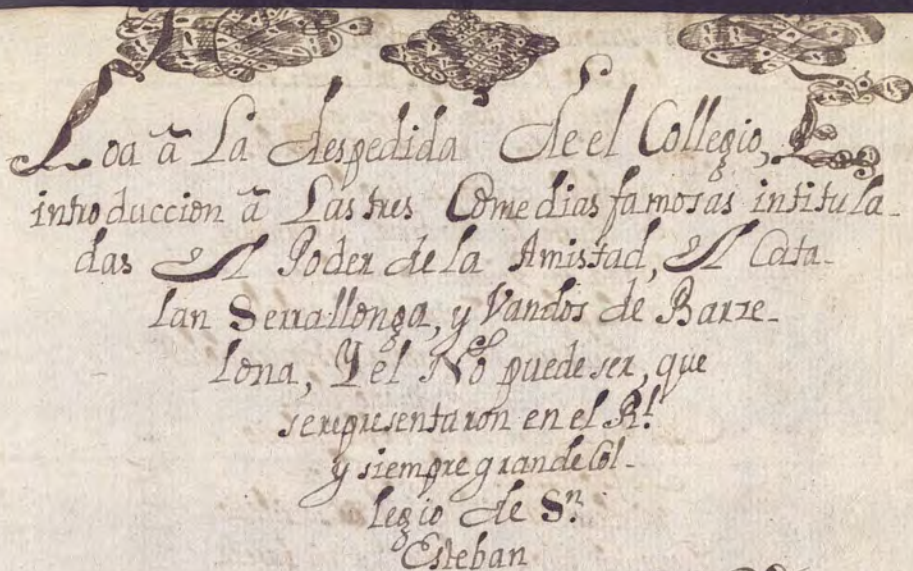 Loa â La despedida de el Collegio, E
introduccion â Las tres Comedias famosas intitula-
das El Poder de la Amistad, El Cata-
lan Serrallonga, y Vandos de Barze-
lona, Y el No puede ser, que
serepresentaron en el Rl.
y siempre grande Col-
legio de Sn.
Esteban